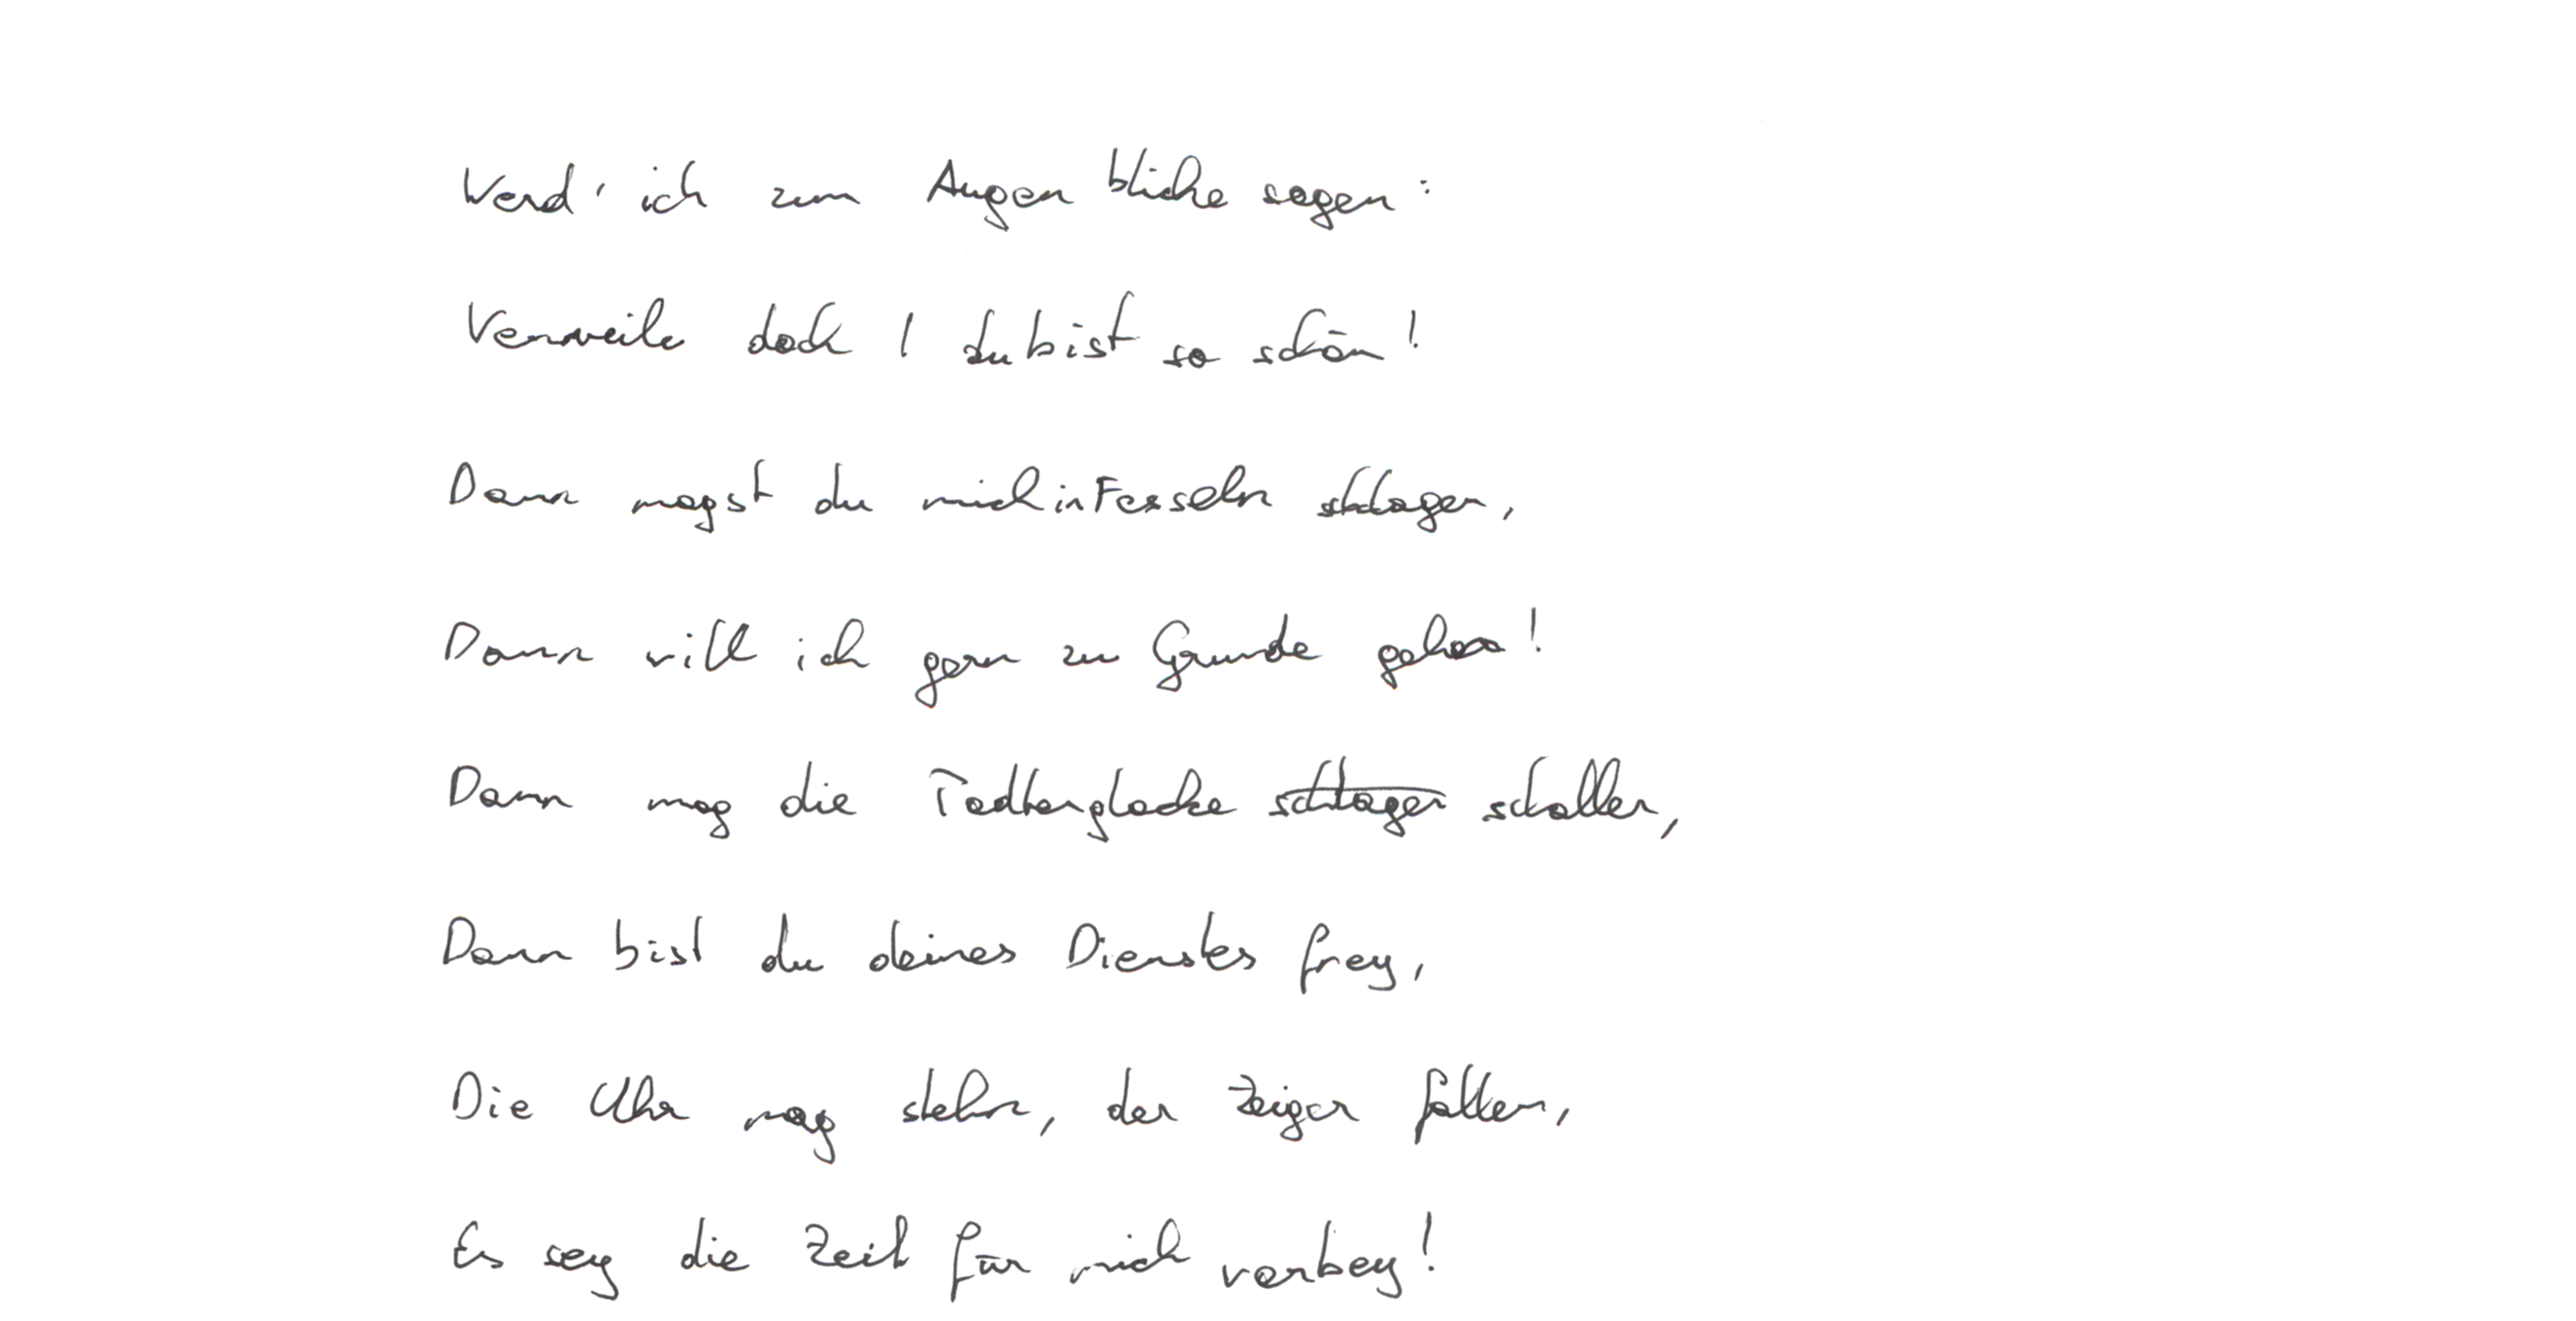 Werd' ich zum Augenblicke sagen:
Verweile doch! du bist so schön!
Dann magst du mich in Fesseln schlagen,
Dann will ich gern zu Grunde gehen!
Dann mag die Todtenglocke schlagen schallen,
Dann bist du deines Dienstes frey,
Die Uhr mag stehn, der Zeiger fallen,
Es sey die Zeit für mich vorbey!